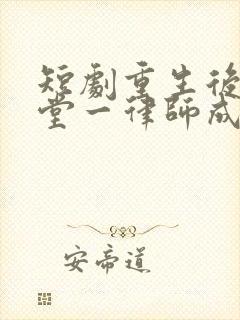 短劇重生後
堂一律師成
安帝道